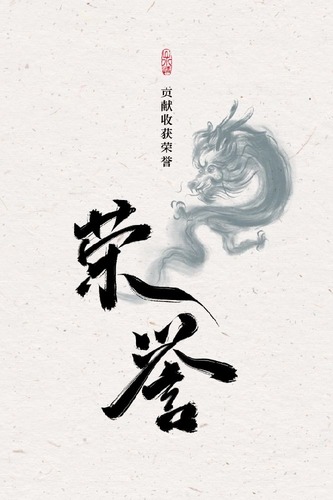 贡献收获荣誉
荣
誉